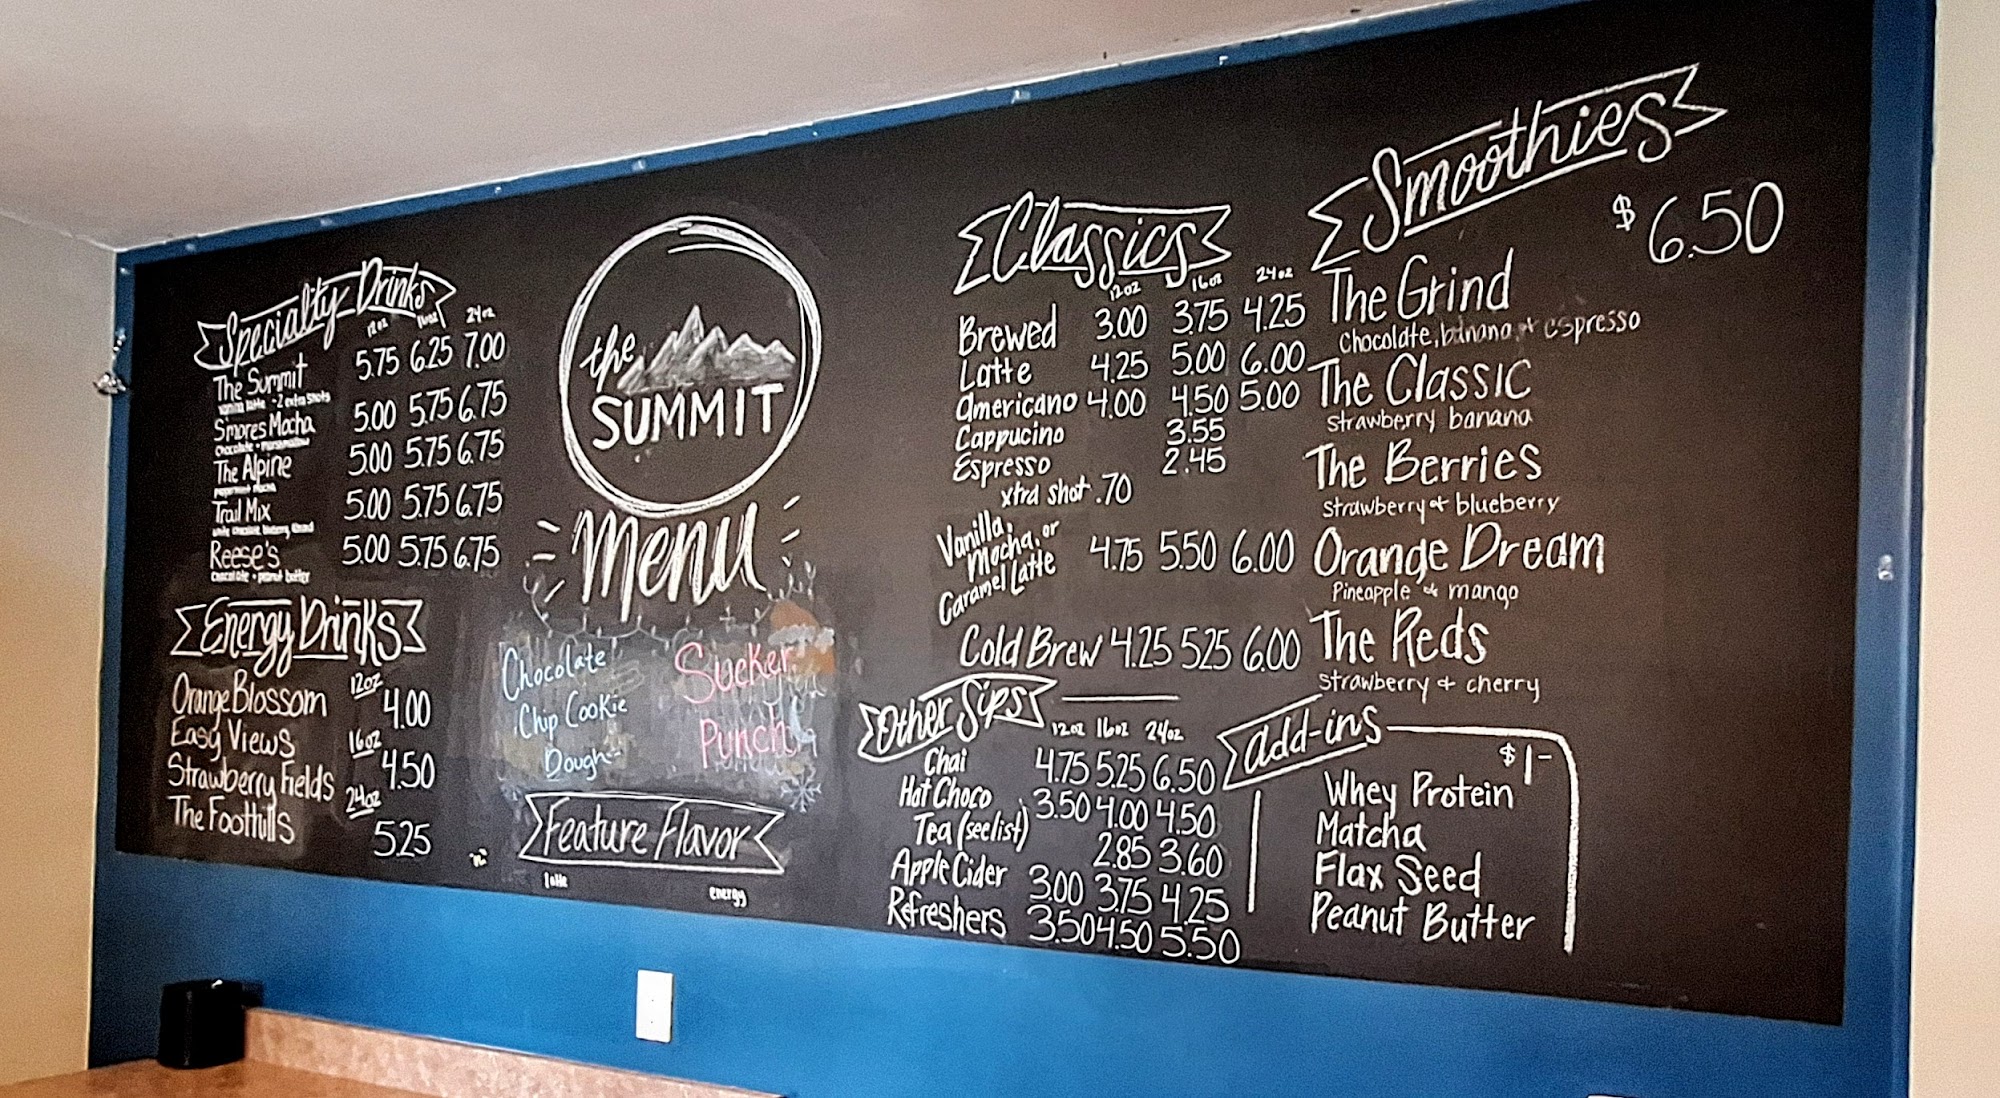 Specialty Drinks
12oz 16oz 24oz
The Summit 5.75 6.25 7.00
vanilla latte - 2 extra shots
S'mores Mocha 5.00 5.75 6.75
chocolate + marshmallow
The Alpine 5.00 5.75 6.75
peppermint mocha
Trail Mix 5.00 5.75 6.75
white chocolate,
Reese's 5.00 5.75 6.75
chocolate + peanut butter
Energy Drinks
Orange Blossom
Easy Views
Strawberry Fields
The Foothills
12oz
4.00
16oz
4.50
24oz
5.25
the
SUMMIT
Menu
Chocolate
Chip Cookie
Dough
Sucker
Punch
Feature Flavor
latte
energy
Classics
12oz 16oz 24oz
Brewed 3.00 3.75 4.25
Latte 4.25 5.00 6.00
Americano 4.00 4.50 5.00
Cappucino 3.55
Espresso 2.45
xtra shot .70
Vanilla,
Mocha, or
Caramel Latte
4.75 5.50 6.00
Cold Brew 4.25 5.25 6.00
Other Sips
12oz 16oz 24oz
Chai 4.75 5.25 6.50
Hot Choco 3.50 4.00 4.50
Tea (see list) 2.85 3.60
Apple Cider 3.00 3.75 4.25
Refreshers 3.50 4.50 5.50
Smoothies
$6.50
The Grind
Chocolate, banana + espresso
The Classic
strawberry banana
The Berries
strawberry + blueberry
Orange Dream
Pineapple + mango
The Reds
strawberry + cherry
add-ins
$1-
Whey Protein
Matcha
Flax Seed
Peanut Butter